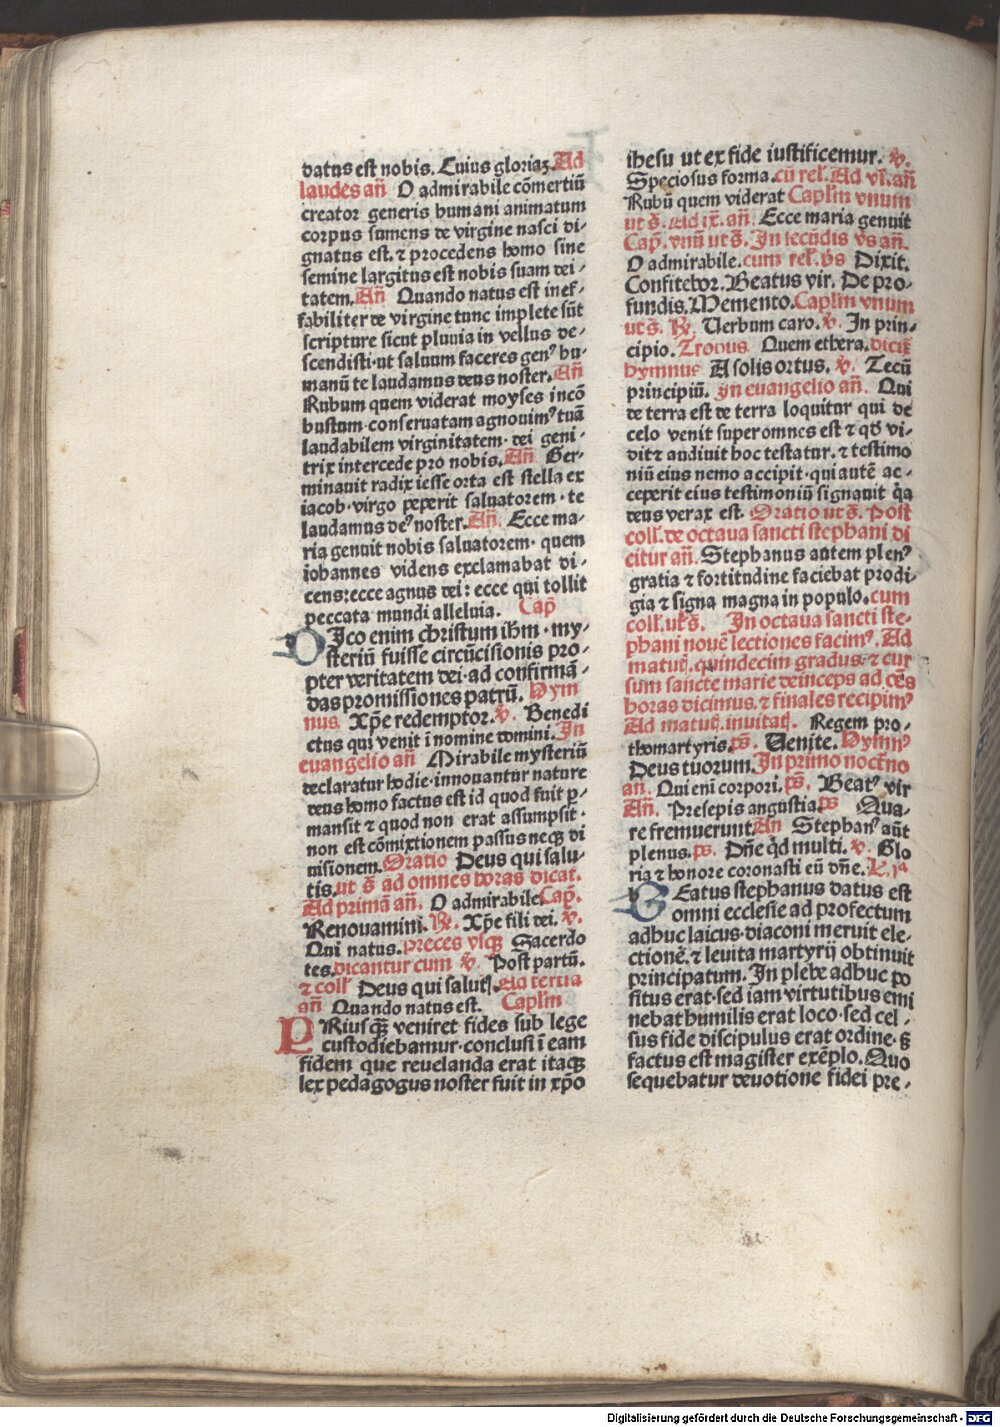 datus est nobis. Cuius gloriaꝫ. Ad
laudes an̄ O admirabile cōmertiū
creator generis humani animatum
corpus sumens de virgine nasci di-
gnatus est. ⁊ procedens homo sine
semine largitus est nobis suam dei-
tatem. An̄ Quando natus est inef-
fabiliter de virgine tunc implete sūt
scripture sicut pluuia in vellus de-
scendisti·ut saluum faceres genꝰ hu-
manū te laudamus deus noster. An̄
Rubum quem viderat moyses incō
bustum·conseruatam agnouimꝰ tuā
laudabilem virginitatem· dei geni-
trix intercede pro nobis. An̄ Ger-
minauit radix iesse orta est stella ex
iacob·virgo peperit saluatorem·te
laudamus deꝰ noster. An̄. Ecce ma-
ria genuit nobis saluatorem· quem
iohannes videns exclamabat di-
cens: ecce agnus dei: ecce qui tollit
peccata mundi alleluia. Cap̄
DIco enim christum ihm̄·my-
steriū fuisse circūcisionis pro-
pter veritatem dei·ad confirmā-
das promissiones patrū. Hym
nus Xp̄e redemptor. v̄. Benedi
ctus qui venit ī nomine domini. In
euangelio an̄ Mirabile mysteriū
declaratur hodie·innouantur nature
deus homo factus est id quod fuit ꝑ-
mansit ⁊ quod non erat assumpsit·
non est cōmixtionem passus neqꝫ di
uisionem. Oratio Deus qui salu-
tis. ut s̄ ad omnes horas dicat.
Ad primā an̄. O admirabile Cap̄.
Renouamini. R̄. Xp̄e fili dei. v̄.
Qui natus. preces vsqꝫ Sacerdo
tes. dicantur cum v̄. Post partū.
⁊ coll̄ Deus qui saluť. Ad tertia
an̄ Quando natus est. Caplm̄
PRiusqꝫ veniret fides sub lege
custodiebamur·conclusi ī eam
fidem que reuelanda erat itaqꝫ
lex pedagogus noster fuit in xp̄o
ihesu ut ex fide iustificemur. v̄.
Speciosus forma. cū rel̄. Ad vi. an̄
Rubū quem viderat Caplm̄ vnum
ut s̄. Ad ix. an̄. Ecce maria genuit
Cap̄. vnū ut s̄. In secūdis v̄s an̄.
O admirabile. cum rel̄. p̄s Dixit.
Confitebor. Beatus vir. De pro-
fundis. Memento. Caplm̄ vnum
ut s̄. R̄. Verbum caro. v̄. In prin-
cipio. Tropus Quem ethera. dicit᷑
hymnus A solis ortus. v̄. Tecū
principiū. In euangelio an̄. Qui
de terra est de terra loquitur qui de
celo venit super omnes est ⁊ qd̄ vi-
dit ⁊ audiuit hoc testatur. ⁊ testimo
niū eius nemo accipit·qui autē ac-
ceperit eius testimoniū signauit q̇a
deus verax est. Oratio ut s̄. Post
coll̄. de octaua sancti stephani di
citur an̄. Stephanus autem plenꝰ
gratia ⁊ fortitudine faciebat prodi-
gia ⁊ signa magna in populo. cum
coll̄. ut s̄. In octaua sancti ste-
phani nouē lectiones facimꝰ. Ad
matut̄. quindecim gradus. ⁊ cur
sum sancte marie deinceps ad oēs
horas dicimus. ⁊ finales recipimꝰ
Ad matut̄. inuitat̄. Regem pro-
thomartyris. p̄s. Venite. Hymnꝰ
Deus tuorum. In primo nocťno
an̄. Qui eni corpori. p̄s. Beatꝰ vir
An̄. Presepis angustia. p̄s Qua-
re fremuerunt. An̄ Stephanꝰ aūt
plenus. p̄s. Dn̄e q̇d multi. v̄. Glo
ria ⁊ honore coronasti eū dn̄e. L. jᵃ
BEatus stephanus datus est
omni ecclesie ad profectum
adhuc laicus·diaconi meruit ele-
ctionē. ⁊ leuita martyrij obtinuit
principatum. In plebe adhuc po
situs erat·sed iam virtutibus emi
nebat humilis erat loco·sed cel-
sus fide discipulus erat ordine·sꝫ
factus est magister exēplo. Quo
sequebatur deuotione fidei pre-
Digitalisierung gefördert durch die Deutsche Forschungsgemeinschaft - DFG